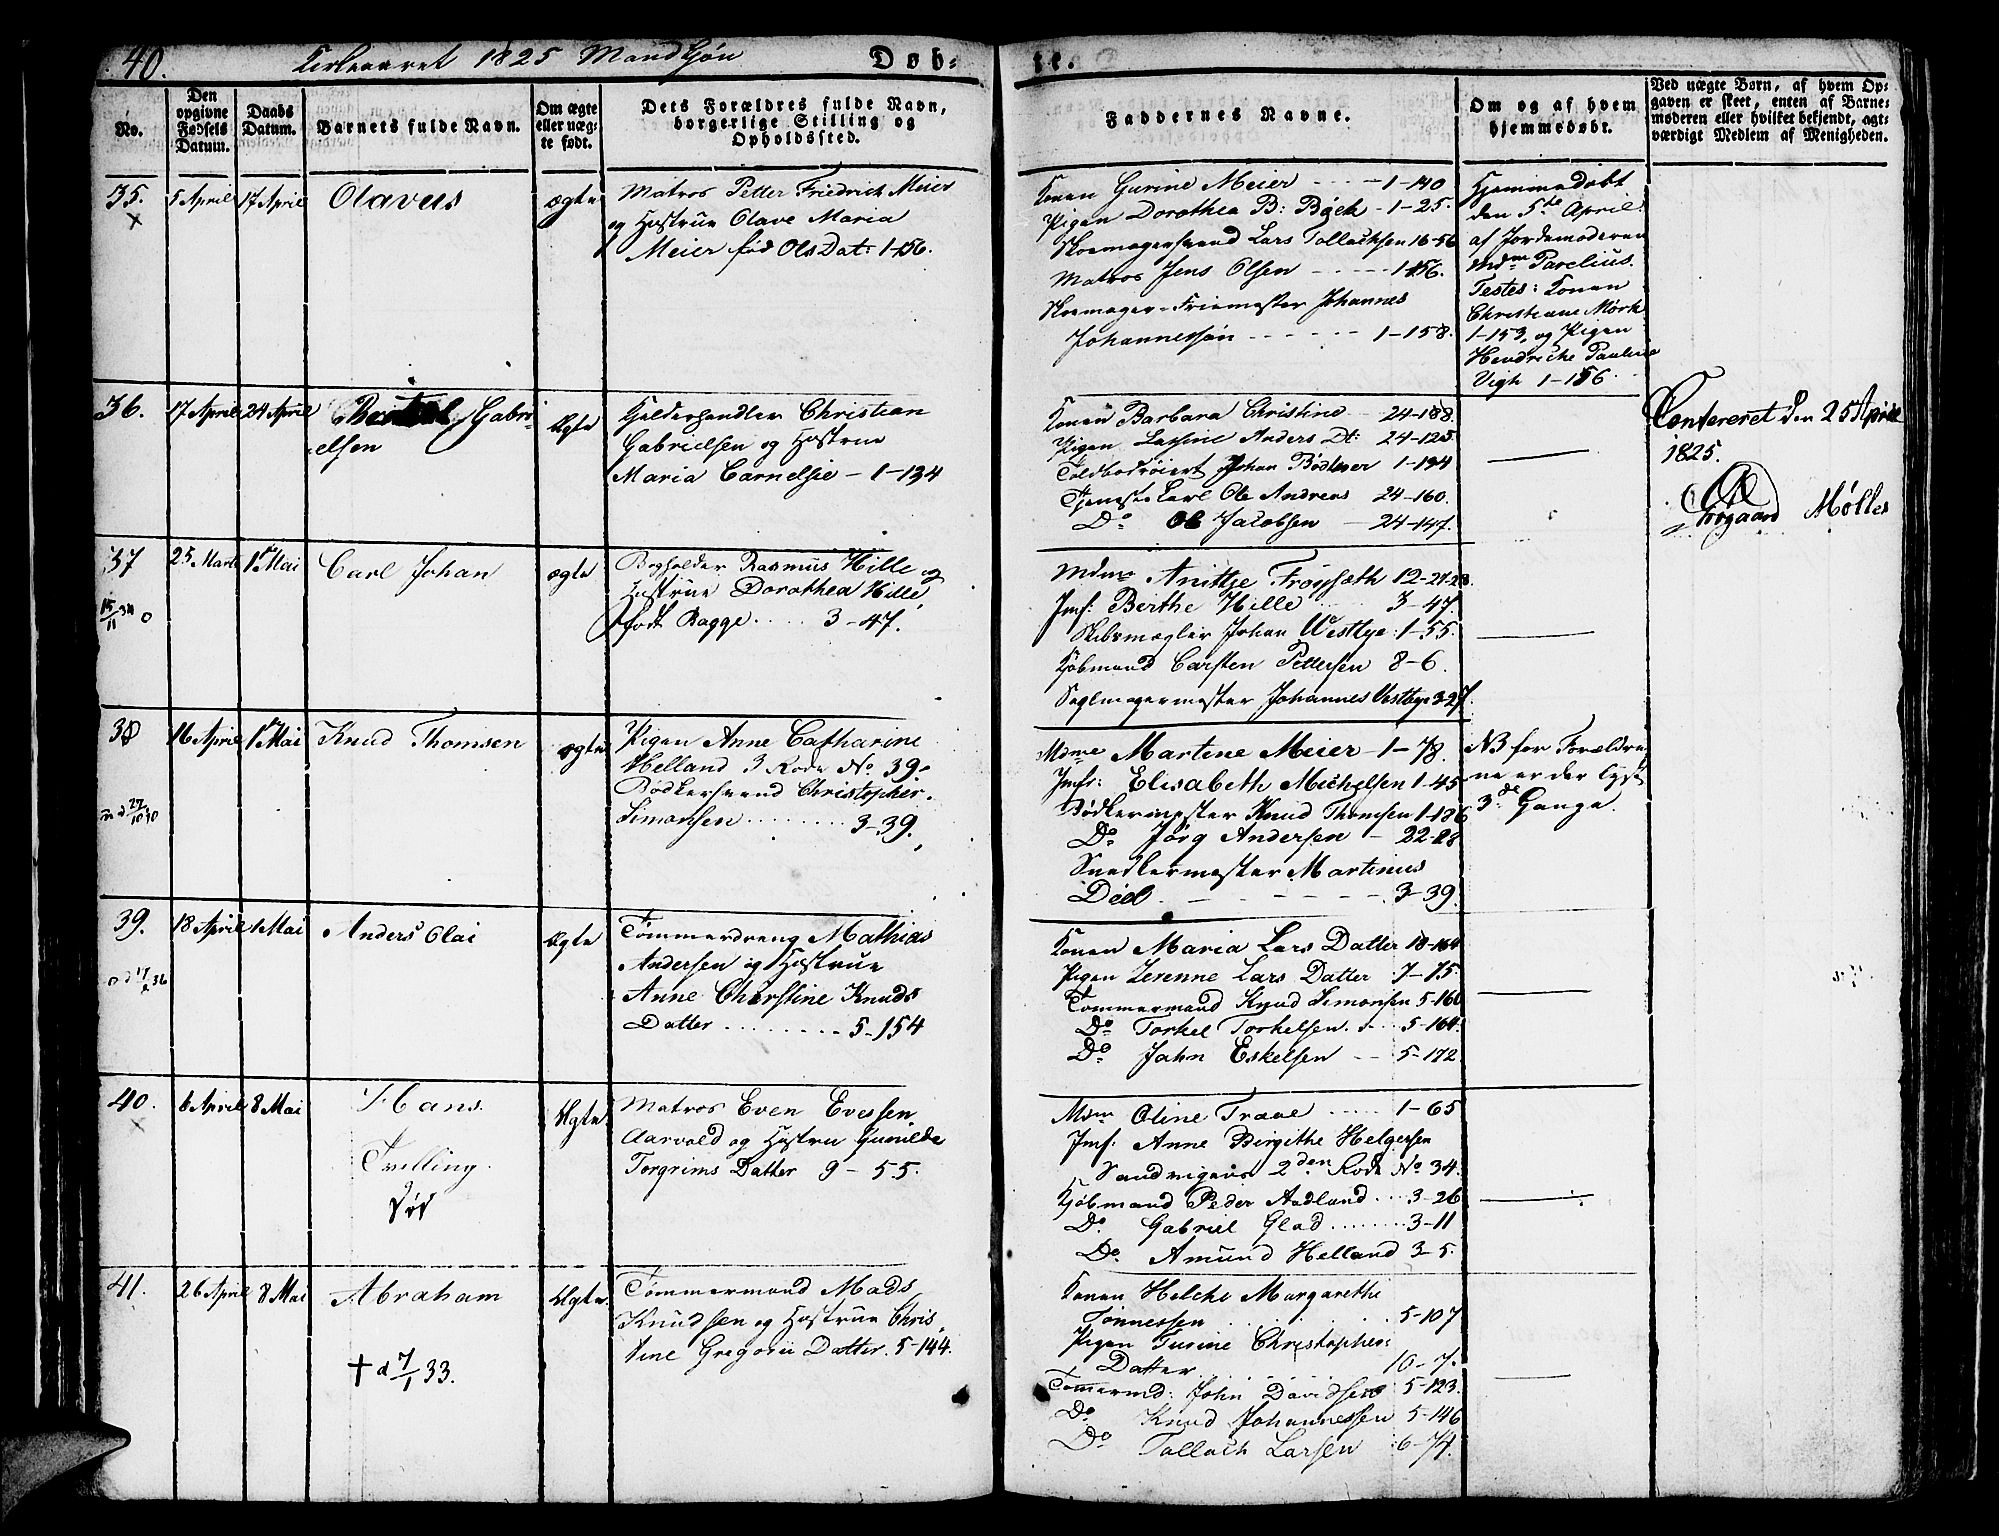 40.
Kirkeaaret 1825 Mandkjøn
Døb-
te.
No.
Den
opgivne
Fødsels
Datum.
Daabs
Datum.
Barnets fulde Navn.
Om ægte
eller uæg-
te født.
Dets Forældres fulde Navn,
borgerlige Stilling og
Opholdssted.
Faddernes Navne.
Om og af hvem
hjemmedøbt.
Ved uægte Børn, af hvem Op-
gaven er skeet, enten af Barne-
moderen eller hvilket bekjendt, agt-
værdigt Medlem af Menigheden.
35.
5 April
17 April
Olavus
ægte
Matros Petter Friedrich Meier
og Hustrue Olave Maria
Meier fød Ols Dat: 1-156.
Konen Gurine Meier 1-140
Pigen Dorothea B: Bøch - 1-25.
Skomagersvend Lars Tollachsen 16-56
Matros Jens Olsen 1-156.
Skomager-Friemester Johannes
Johannessøn 1-158.
Hjemmedøbt
den 5te April
af Jordemoderen
Mdm Parelius.
Testes: Konen
Christiane Mørk
1-153, og Pigen
Hendriche Pauline
Vigh 1-156.
36.
17 April
24 April
Gabri-
elsen
Ægte
Christian
Gabrielsen og Hustrue
Maria Cornelsie - 1-134
Konen Barbara Christine 24-188.
Pigen Lassine Anders Dt: 24-125.
Johan Bødker 1-134
Tjeneste Karl Ole Andreas 24-160.
Do Ole Jacobsen 24-147.
Centereret den 25 April
1825.
37
25 Marts
1 Mai
15/11 34
Carl Johan
ægte
Bogholder Rasmus Hille og
Hustrue Dorothea Hille
født Bagge 3-47.
Mdme Anittge Frøysæth 12-27-28.
Jmf: Berthe Hille 3-47.
Skibsmægler Johan Westbye 1-55.
Kjøbmand Carsten Pettersen 8-6.
Seglmagermester Johannes Vestbye 3-27.
38
16 April
1 Mai
Knud Thomsen
ægte
Pigen Anne Catharine
Helland 3 Rode No 39.
Bødkersvend Christopher
Simonsen 3-39.
Mdme Martene Meier - 1-78.
Jmfr: Elisabeth Michelsen 1-45
Bødkermester Knud Thomsen 1-186
Do Jørg Andersen - 22-28
Snedkermester Martinus
Død 3-39.
NB for Forældre-
ne er der lyst
3de Gange.
39.
18 April
1 Mai
Anders Olai
Ægte
Tømmerdreng Mathias
Andersen og Hustrue
Anne Chørstine Knuds
Datter 5-154
Konen Maria Lars Datter 18-164
Pigen Zerenne Lars Datter 7-75.
Tømmermand Knud Simonsen 5-160
Do Torkel Torkelsen 5-164.
Do Jahn Eskelsen 5-172.
40.
8 April
8 Mai
Hans.
Tvilling.
Død
Ægte
Matros Even Evessen
Aarvold og Hustru Gunilde
Torgrims Datter 9-55.
Mdm Oline Traae 1-65
Jmf: Anne Birgithe Helgersen
Sandvigen 2den Rode No 34.
Kjøbmand Peder Aadland 3-26
Do Gabriel Glad 3-11
Do Amund Helland 3-5.
41.
26 April
8 Mai
Abraham
† d 7/1 33.
Ægte
Tømmermand Mads
Knudsen og Hustrue Chris-
tine Gregorii Datter. 5-144.
Konen Helche Margarethe
Tønnessen 5-107
Pigen Turine Christopher:
Datter 10-7.
Tømermd: John Davidsen 5-123.
Do Knud Johannessen 5-146
Do Tollach Larsen 6-74.